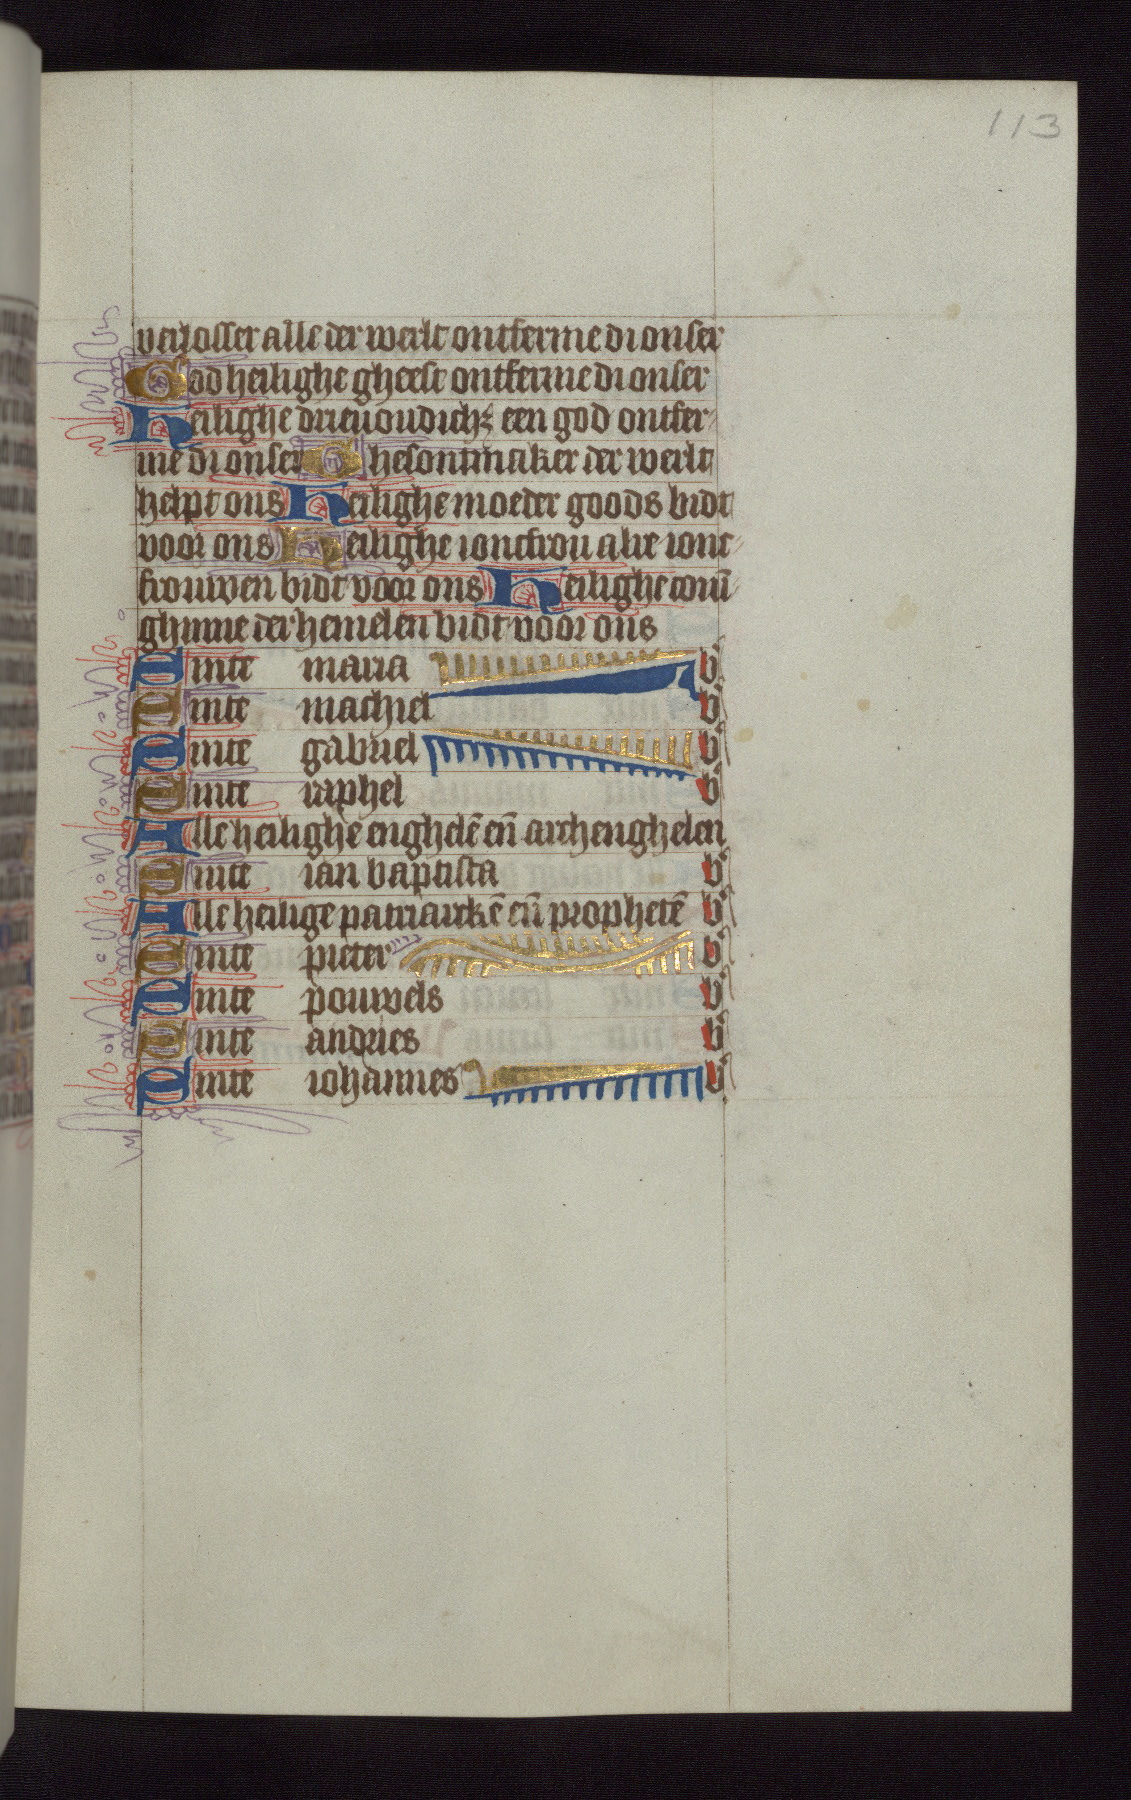 113
verlosser alle der werlt ontferme di onser
God heilighe gheest ontferme di onser
Heilighe drieuoudich⁊ een god ontfer-
me di onser Ghesontmaker der werlt
helpt ons Heilighe moeder goods bidt
voor ons Heilighe ioncfrou alre ionc-
frouwen bidt voor ons Heilighe conī-
ghinne der hemelen bidt voor ons
Sinte maria b
Sinte machiel b
Sinte gabriel b
Sinte raphel b
Alle heilighe enghelē eñ archenghelen
Sinte ian baptista b
Alle heilige patriarckē eñ prophetē b
Sinte pieter b
Sinte pouwels b
Sinte andries b
Sinte iohannes b